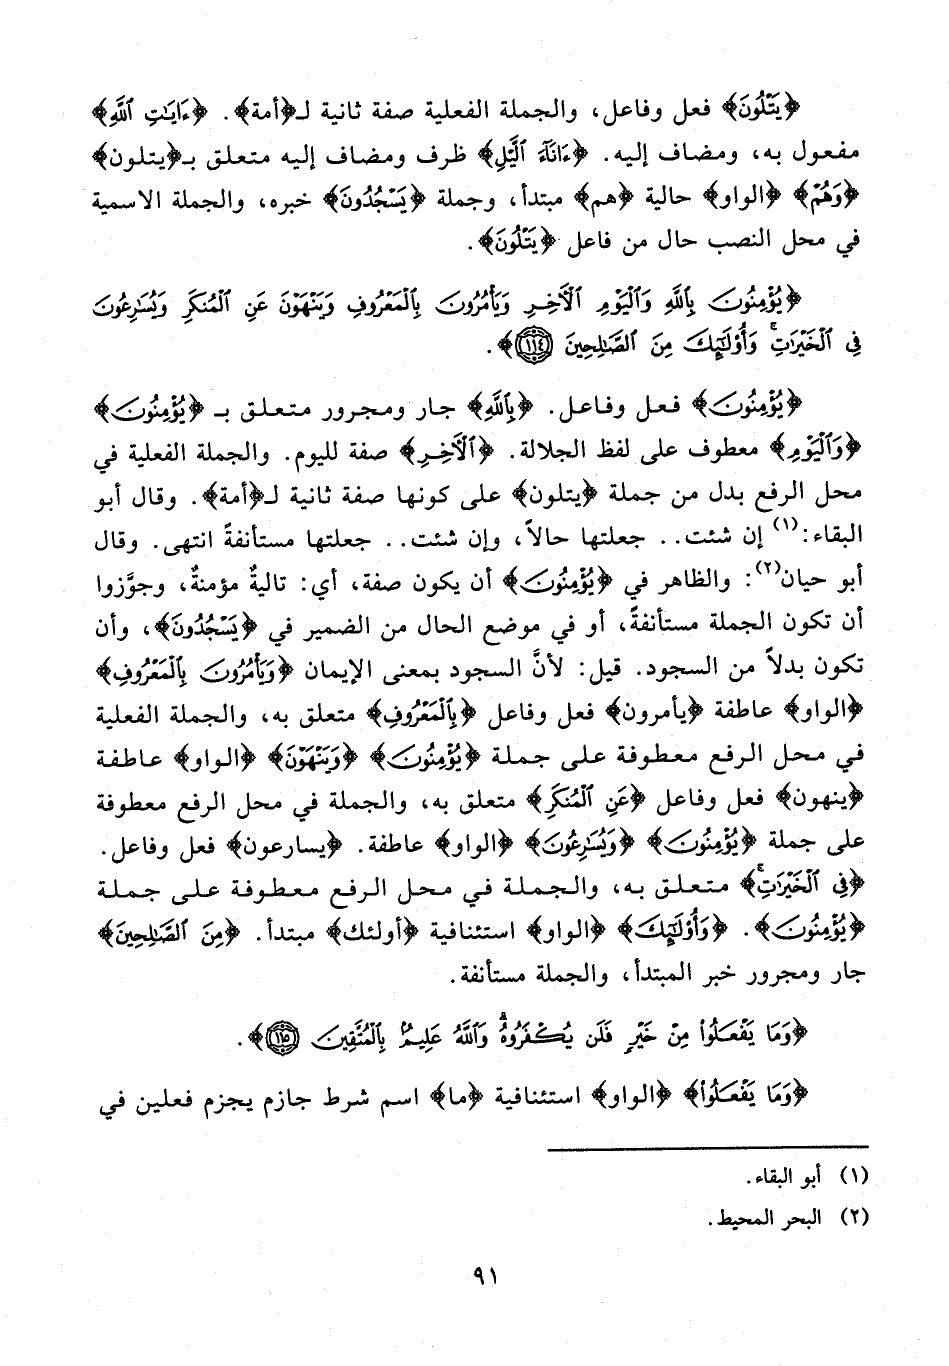 ﴿يَتْلُونَ﴾ فعل وفاعل، والجملة الفعلية صفة ثانية لـ﴿أمة﴾. ﴿ءَايَٰتِ ٱللَّهِ﴾
مفعول به، ومضاف إليه. ﴿ءَانَآءَ ٱلَّيْلِ﴾ ظرف ومضاف إليه متعلق بـ﴿يتلون﴾
﴿وَهُمْ﴾ ﴿الواو﴾ حالية ﴿هم﴾ مبتدأ، وجملة ﴿يَسْجُدُونَ﴾ خبره، والجملة الاسمية
في محل النصب حال من فاعل ﴿يَتْلُونَ﴾.
﴿يُؤْمِنُونَ بِٱللَّهِ وَٱلْيَوْمِ ٱلْأَخِرِ وَيَأْمُرُونَ بِٱلْمَعْرُوفِ وَيَنْهَوْنَ عَنِ ٱلْمُنكَرِ وَيُسَٰرِعُونَ
فِى ٱلْخَيْرَٰتِۚ وَأُو۟لَٰٓئِكَ مِنَ ٱلصَّٰلِحِينَ ١١٤﴾.
﴿يُؤْمِنُونَ﴾ فعل وفاعل. ﴿بِٱللَّهِ﴾ جار ومجرور متعلق بـ ﴿يُؤْمِنُونَ﴾
﴿وَٱلْيَوْمِ﴾ معطوف على لفظ الجلالة. ﴿ٱلْأَخِرِ﴾ صفة لليوم. والجملة الفعلية في
محل الرفع بدل من جملة ﴿يتلون﴾ على كونها صفة ثانية لـ﴿أمة﴾. وقال أبو
البقاء:(١) إن شئت.. جعلتها حالاً، وإن شئت.. جعلتها مستأنفةً انتهى. وقال
أبو حيان(٢): والظاهر في ﴿يُؤْمِنُونَ﴾ أن يكون صفة، أي: تاليةٌ مؤمنةٌ، وجوَّزوا
أن تكون الجملة مستأنفةً، أو في موضع الحال من الضمير في ﴿يَسْجُدُونَ﴾، وأن
تكون بدلاً من السجود. قيل: لأنَّ السجود بمعنى الإيمان ﴿وَيَأْمُرُونَ بِٱلْمَعْرُوفِ﴾
﴿الواو﴾ عاطفة ﴿يأمرون﴾ فعل وفاعل ﴿بِٱلْمَعْرُوفِ﴾ متعلق به، والجملة الفعلية
في محل الرفع معطوفة على جملة ﴿يُؤْمِنُونَ﴾ ﴿وَيَنْهَوْنَ﴾ ﴿الواو﴾ عاطفة
﴿ينهون﴾ فعل وفاعل ﴿عَنِ ٱلْمُنكَرِ﴾ متعلق به، والجملة في محل الرفع معطوفة
على جملة ﴿يُؤْمِنُونَ﴾ ﴿وَيُسَٰرِعُونَ﴾ ﴿الواو﴾ عاطفة. ﴿يسارعون﴾ فعل وفاعل.
﴿فِى ٱلْخَيْرَٰتِۚ﴾ متعلق به، والجملة في محل الرفع معطوفة على جملة
﴿يُؤْمِنُونَ﴾. ﴿وَأُو۟لَٰٓئِكَ﴾ ﴿الواو﴾ استئنافية ﴿أولئك﴾ مبتدأ. ﴿مِنَ ٱلصَّٰلِحِينَ﴾
جار ومجرور خبر المبتدأ، والجملة مستأنفة.
﴿وَمَا يَفْعَلُوا۟ مِنْ خَيْرٍ فَلَن يُكْفَرُوهُۗ وَٱللَّهُ عَلِيمٌۢ بِٱلْمُتَّقِينَ ١١٥﴾.
﴿وَمَا يَفْعَلُوا۟﴾ ﴿الواو﴾ استئنافية ﴿ما﴾ اسم شرط جازم يجزم فعلين في
(١) أبو البقاء.
(٢) البحر المحيط.
٩١